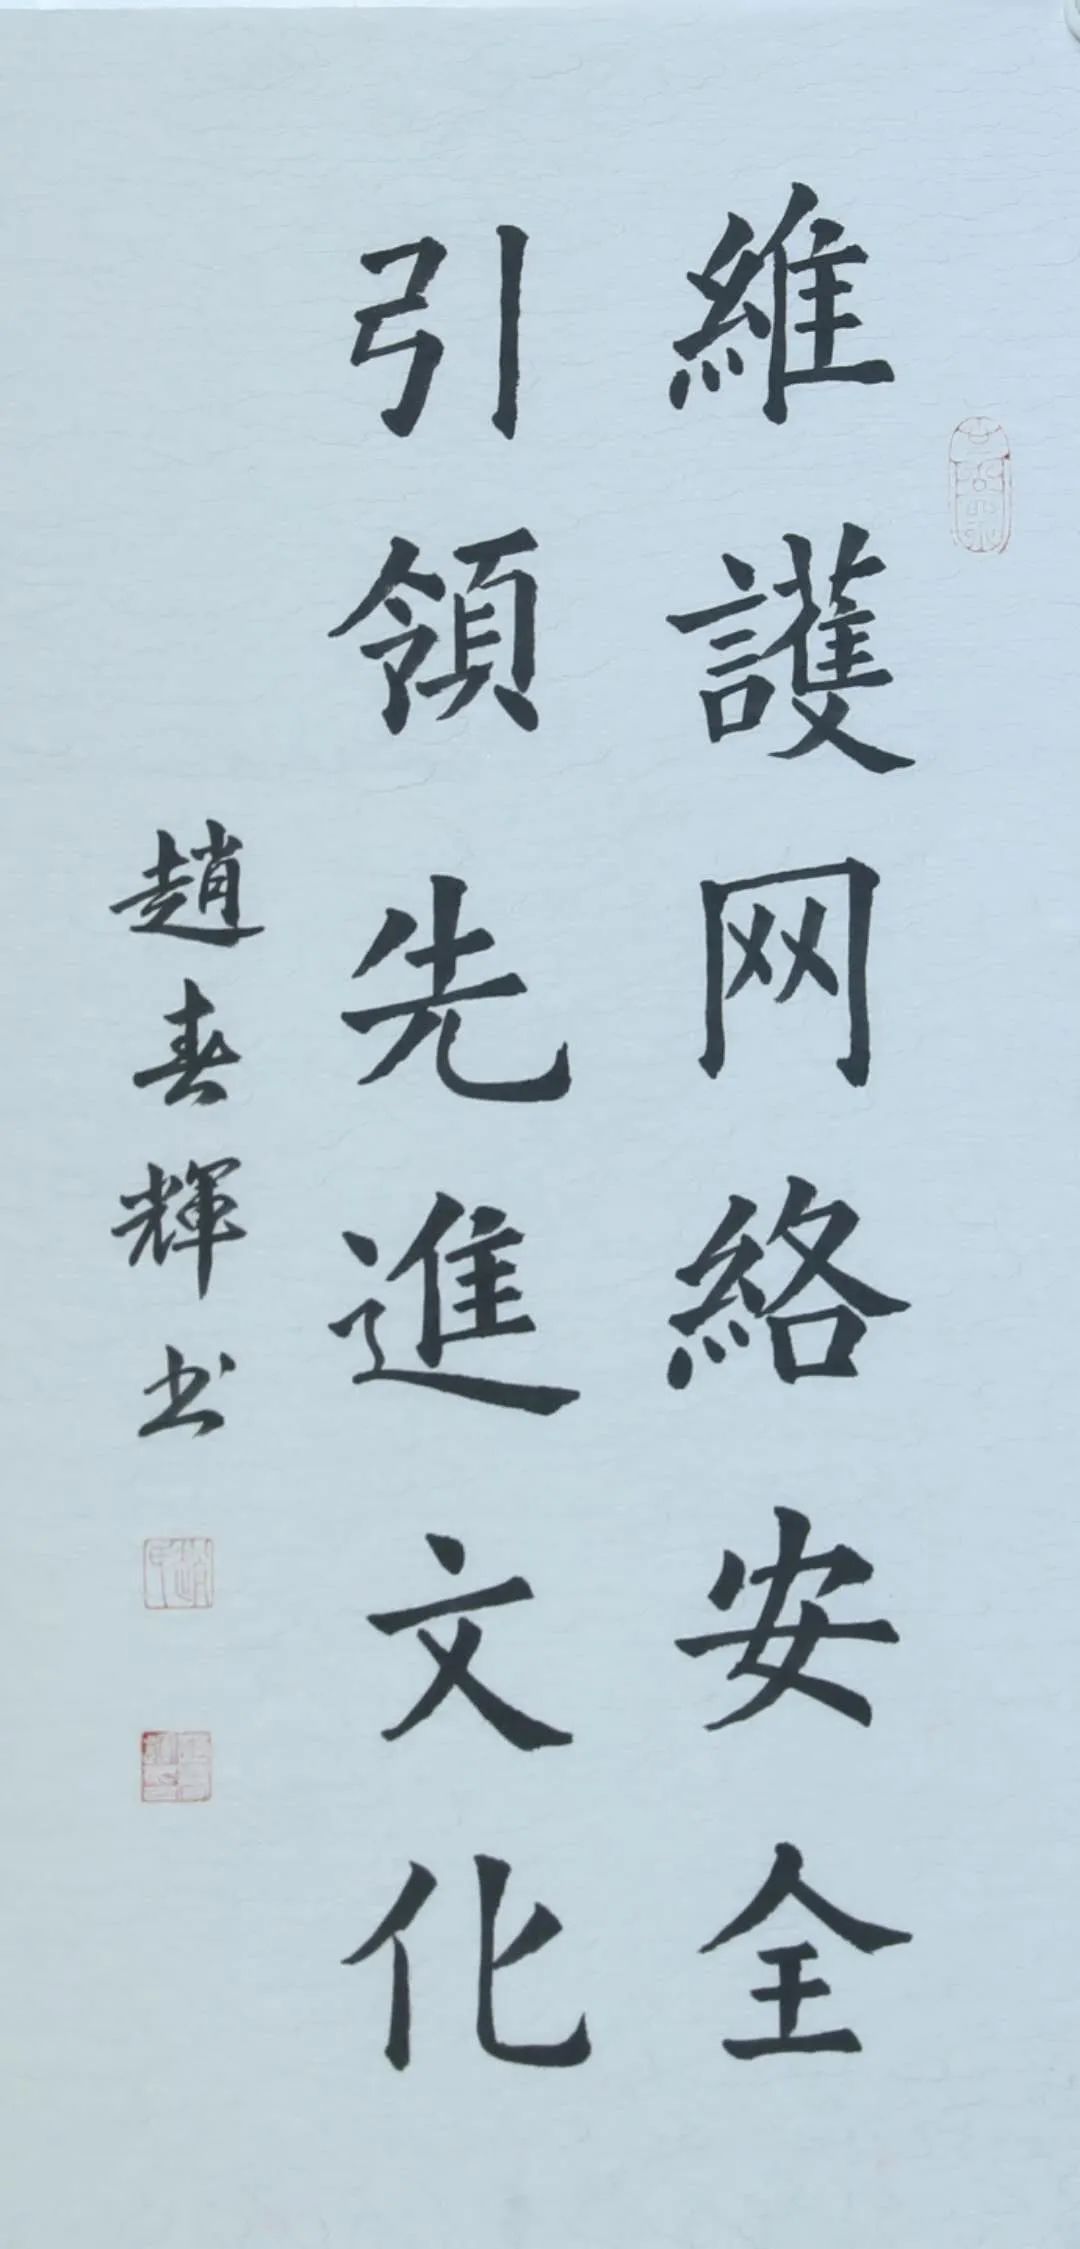 維護网絡安全
引領先進文化
趙春輝书